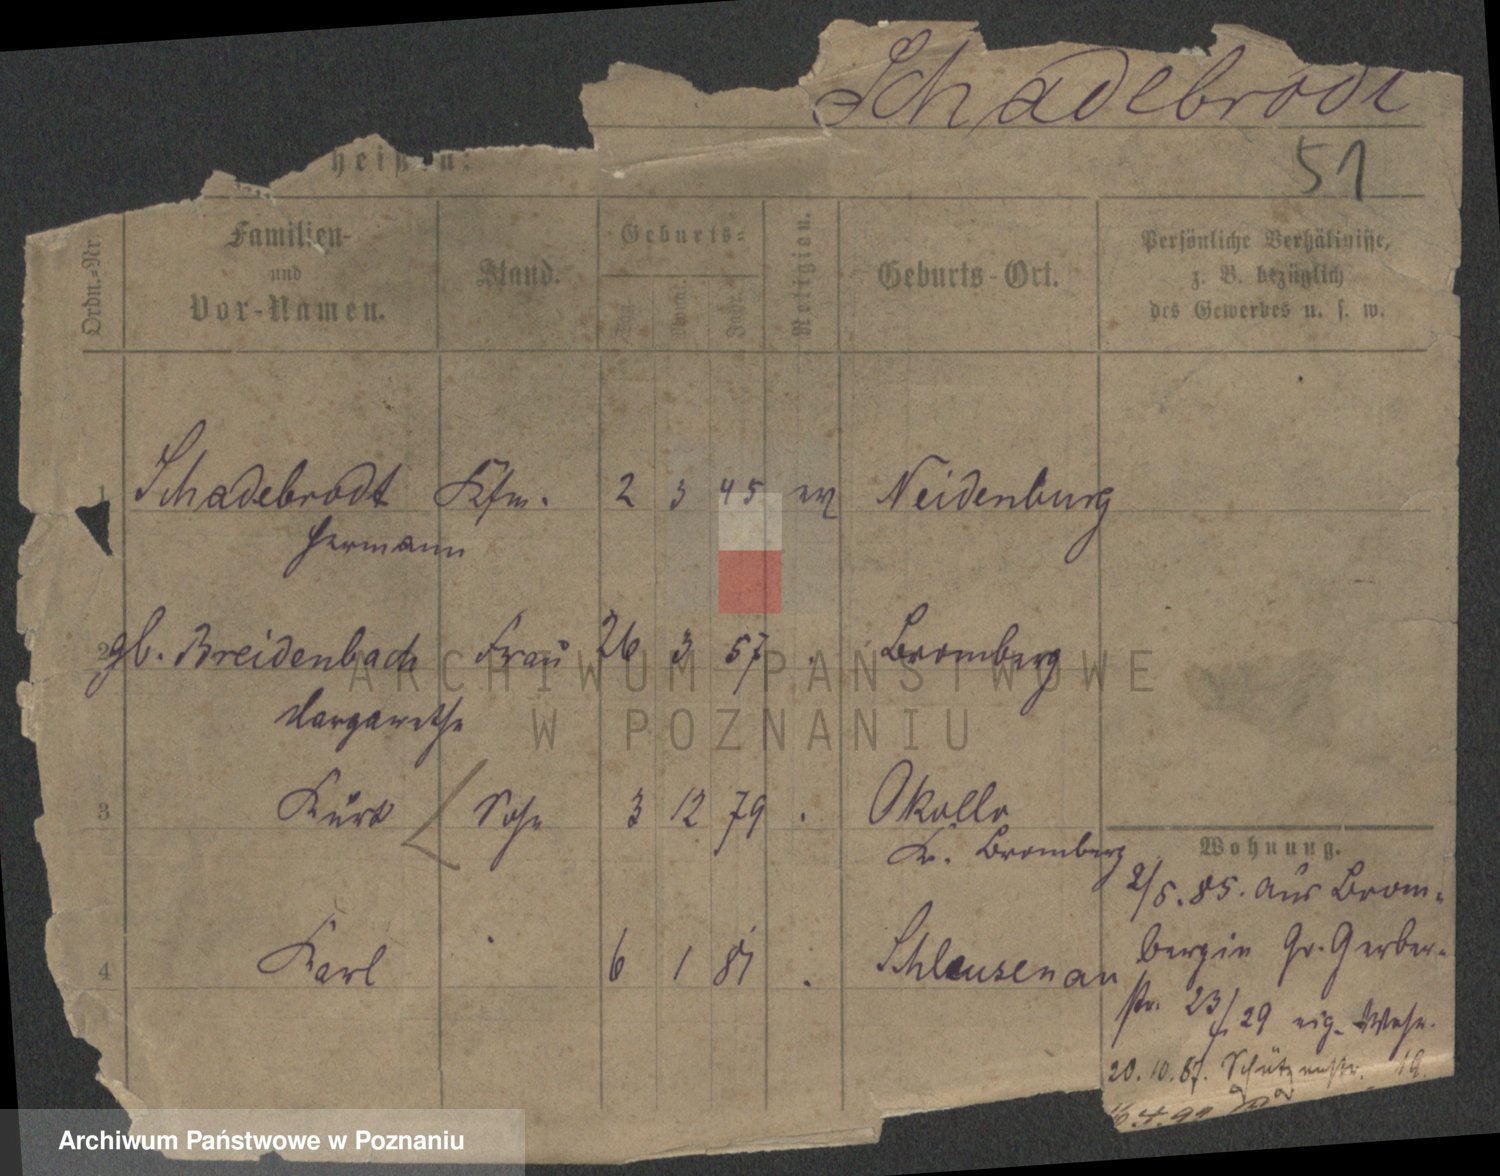 Schadebrodt
51
heißen:
Ordn.-Nr.
Familien-
und
Vor-Namen.
Stand.
Geburts-
Tag. Monat. Jahr.
Religion.
Geburts-Ort.
Persönliche Verhältnisse,
z. B. bezüglich
des Gewerbes u. s. w.
1 Schadebrodt Kfm. 2 3 45 ev Neidenburg
Hermann
2 gb. Breidenbach Frau 26 3 57 . Bromberg
Margarethe
3 Kurt Sohn 3 12 79 . Okollo
Kr. Bromberg
4 Karl . 6 1 81 . Schleusenau
Wohnung.
2/5. 85. aus Brom-
berg in Gr. Gerber-
str. 23/ 29 eig. Wohn.
20.10.87. Schützenstr. 19.
ARCHIWUM PAŃSTWOWE
W POZNANIU
Archiwum Państwowe w Poznaniu